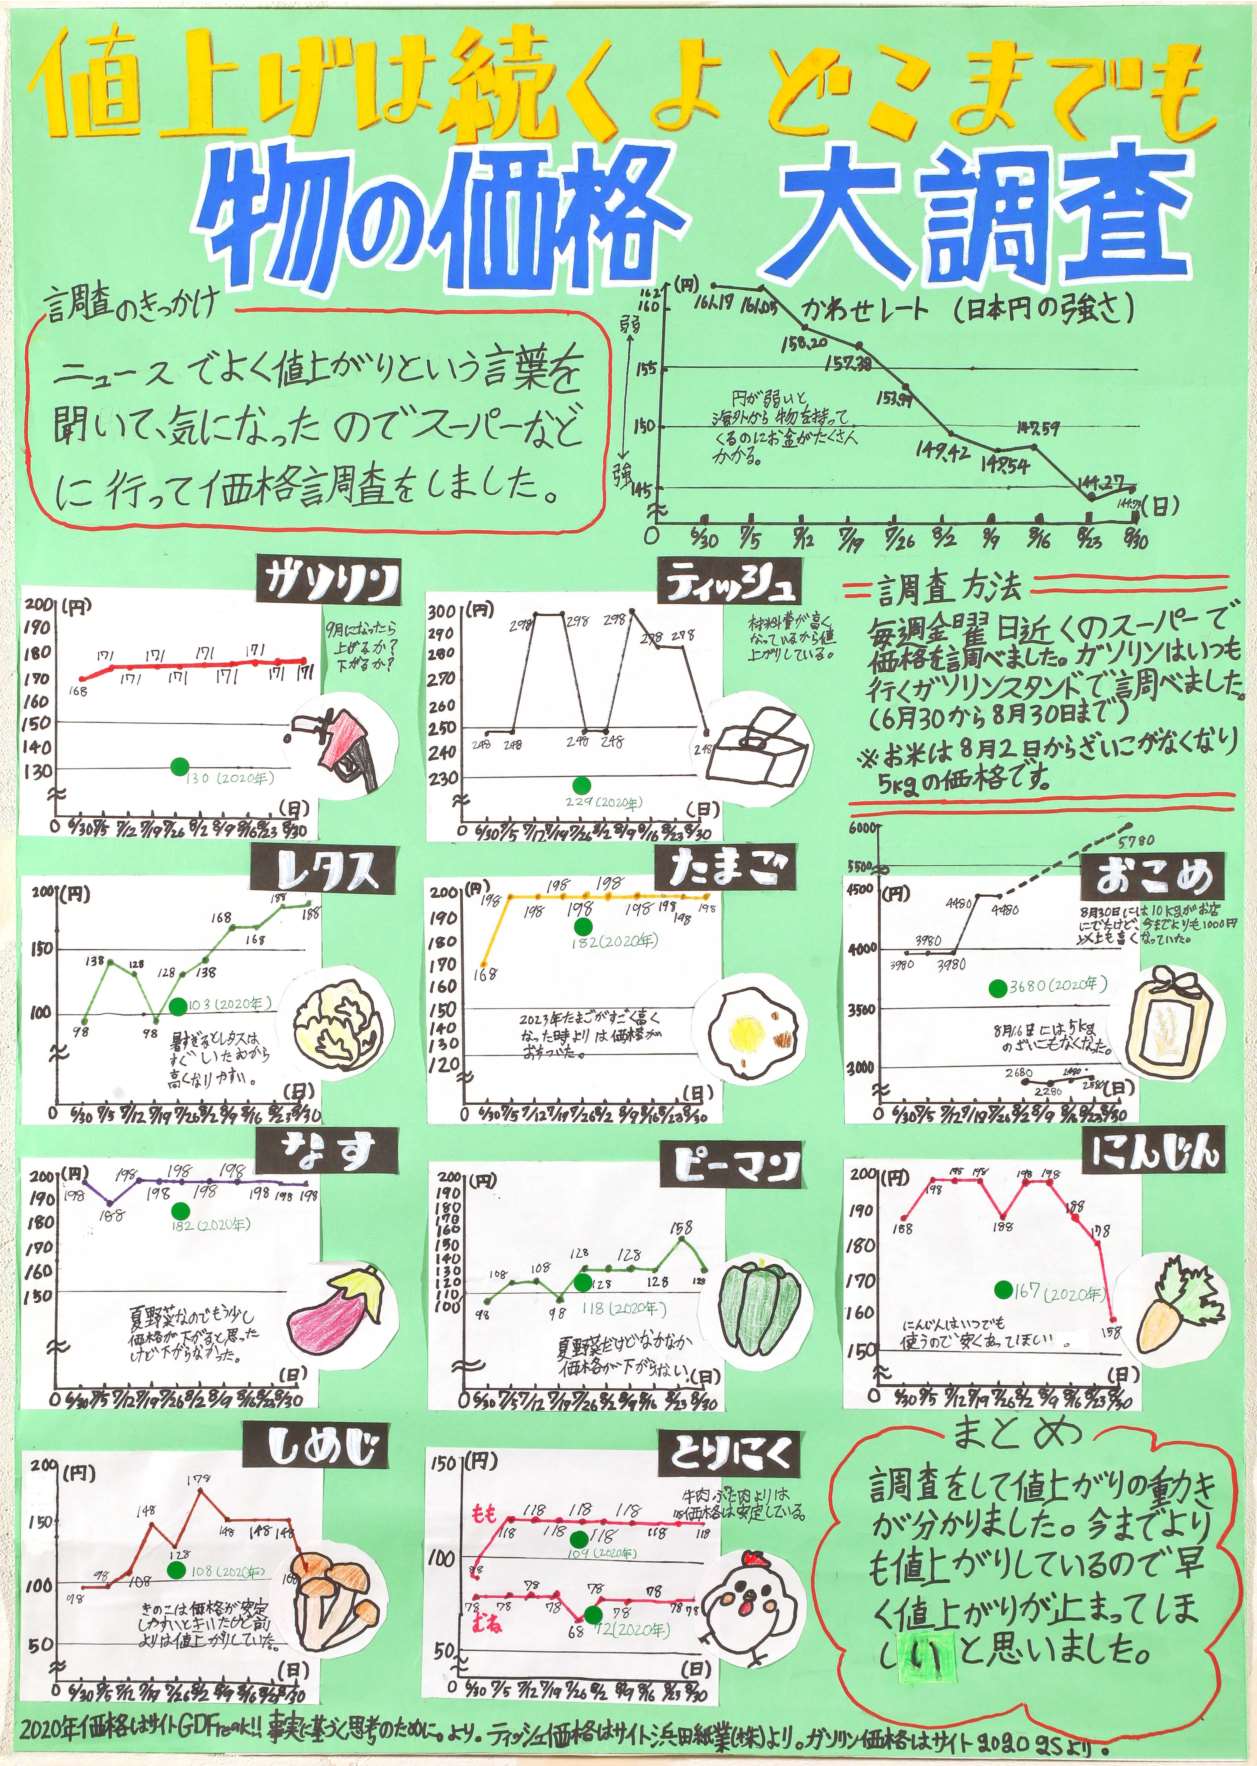 値上げは続くよ どこまでも
物の価格 大調査
調査のきっかけ
ニュースでよく値上がりという言葉を
聞いて、気になったのでスーパーなど
に行って価格調査をしました。
(円) かわせレート (日本円の強さ)
162
160
155
150
145
0
弱
強
161.17 161.05 158.20 157.38 153.99 149.42 147.54 147.59 144.27
円が弱いと
海外から物を持って
くるのにお金がたくさん
かかる。
6/30 7/5 7/12 7/19 7/26 8/2 8/9 8/16 8/23 8/30 (日)
ガソリン
(円)
200
190
180
170
160
150
140
130
0
168 171 171 171 171 171 171 171 171 171
130(2020年)
9月になったら
上げるか?
下がるか?
(日)
6/30 7/5 7/12 7/19 7/26 8/2 8/9 8/16 8/23 8/30
ティッシュ
(円)
300
290
280
270
250
240
230
0
248 248 298 298 248 248 298 278 278 248
229(2020年)
材料費が高く
なっているから値
上がりしている。
(日)
6/30 7/5 7/12 7/19 7/26 8/2 8/9 8/16 8/23 8/30
調査方法
毎週金曜日近くのスーパーで
価格を調べました。ガソリンはいつも
行くガソリンスタンドで調べました。
(6月30から8月30日まで)
※お米は8月2日からざいこがなくなり
5kgの価格です。
レタス
(円)
200
150
100
0
98 138 128 98 128 138 168 168 188 188
103(2020年)
暑すぎるとレタスは
すぐしいたむから
高くなりやすい。
(日)
6/30 7/5 7/12 7/19 7/26 8/2 8/9 8/16 8/23 8/30
たまご
(円)
200
190
180
170
160
150
140
130
120
0
168 198 198 198 198 198 198 198 198 198
182(2020年)
2023年たまごがすごく高く
なった時よりは価格が
おちついた。
(日)
6/30 7/5 7/12 7/19 7/26 8/2 8/9 8/16 8/23 8/30
おこめ
(円)
6000
5500
4500
4000
3500
3000
0
3980 3980 3980 4480 4480 5780
8月30日には10kgがお店
にでたけど、今までよりも1000円
以上も高くなっていた。
3680(2020年)
8月16日には5kg
のざいこもなくなった。
2680 2280
(日)
6/30 7/5 7/12 7/19 7/26 8/2 8/9 8/16 8/23 8/30
なす
(円)
200
190
180
170
160
150
0
198 188 198 198 198 198 198 198 198 198
182(2020年)
夏野菜なのでもう少し
価格が下がると思った
けど下がらなかった。
(日)
6/30 7/5 7/12 7/19 7/26 8/2 8/9 8/16 8/23 8/30
ピーマン
(円)
200
190
180
170
160
150
140
130
120
110
100
0
98 108 108 98 128 128 128 128 158 128
118(2020年)
夏野菜だけどなかなか
価格が下がらない。
(日)
6/30 7/5 7/12 7/19 7/26 8/2 8/9 8/16 8/23 8/30
にんじん
(円)
200
190
180
170
160
150
0
188 198 198 198 188 198 198 188 178 158
167(2020年)
にんじんはいつでも
使うので安くあってほしい。
(日)
6/30 7/5 7/12 7/19 7/26 8/2 8/9 8/16 8/23 8/30
しめじ
(円)
200
150
100
50
0
98 98 108 148 128 178 148 148 148 108
108(2020年)
きのこは価格が安定
しやすいときいたけど前
よりは値上がりしていた。
(日)
6/30 7/5 7/12 7/19 7/26 8/2 8/9 8/16 8/23 8/30
とりにく
(円)
150
100
50
0
牛肉ぶた肉よりは
価格は安定している。
もも
88 118 118 118 118 118 118 118 118 118
109(2020年)
むね
78 78 78 78 68 78 78 78 78 78
72(2020年)
(日)
6/30 7/5 7/12 7/19 7/26 8/2 8/9 8/16 8/23 8/30
まとめ
調査をして値上がりの動き
が分かりました。今までより
も値上がりしているので早
く値上がりが止まってほ
しいと思いました。
2020年価格はサイトGDFreak!! 事実に基づく思考のために。より。ティッシュ価格はサイト浜田紙業(株)より。ガソリン価格はサイト2020 25より。